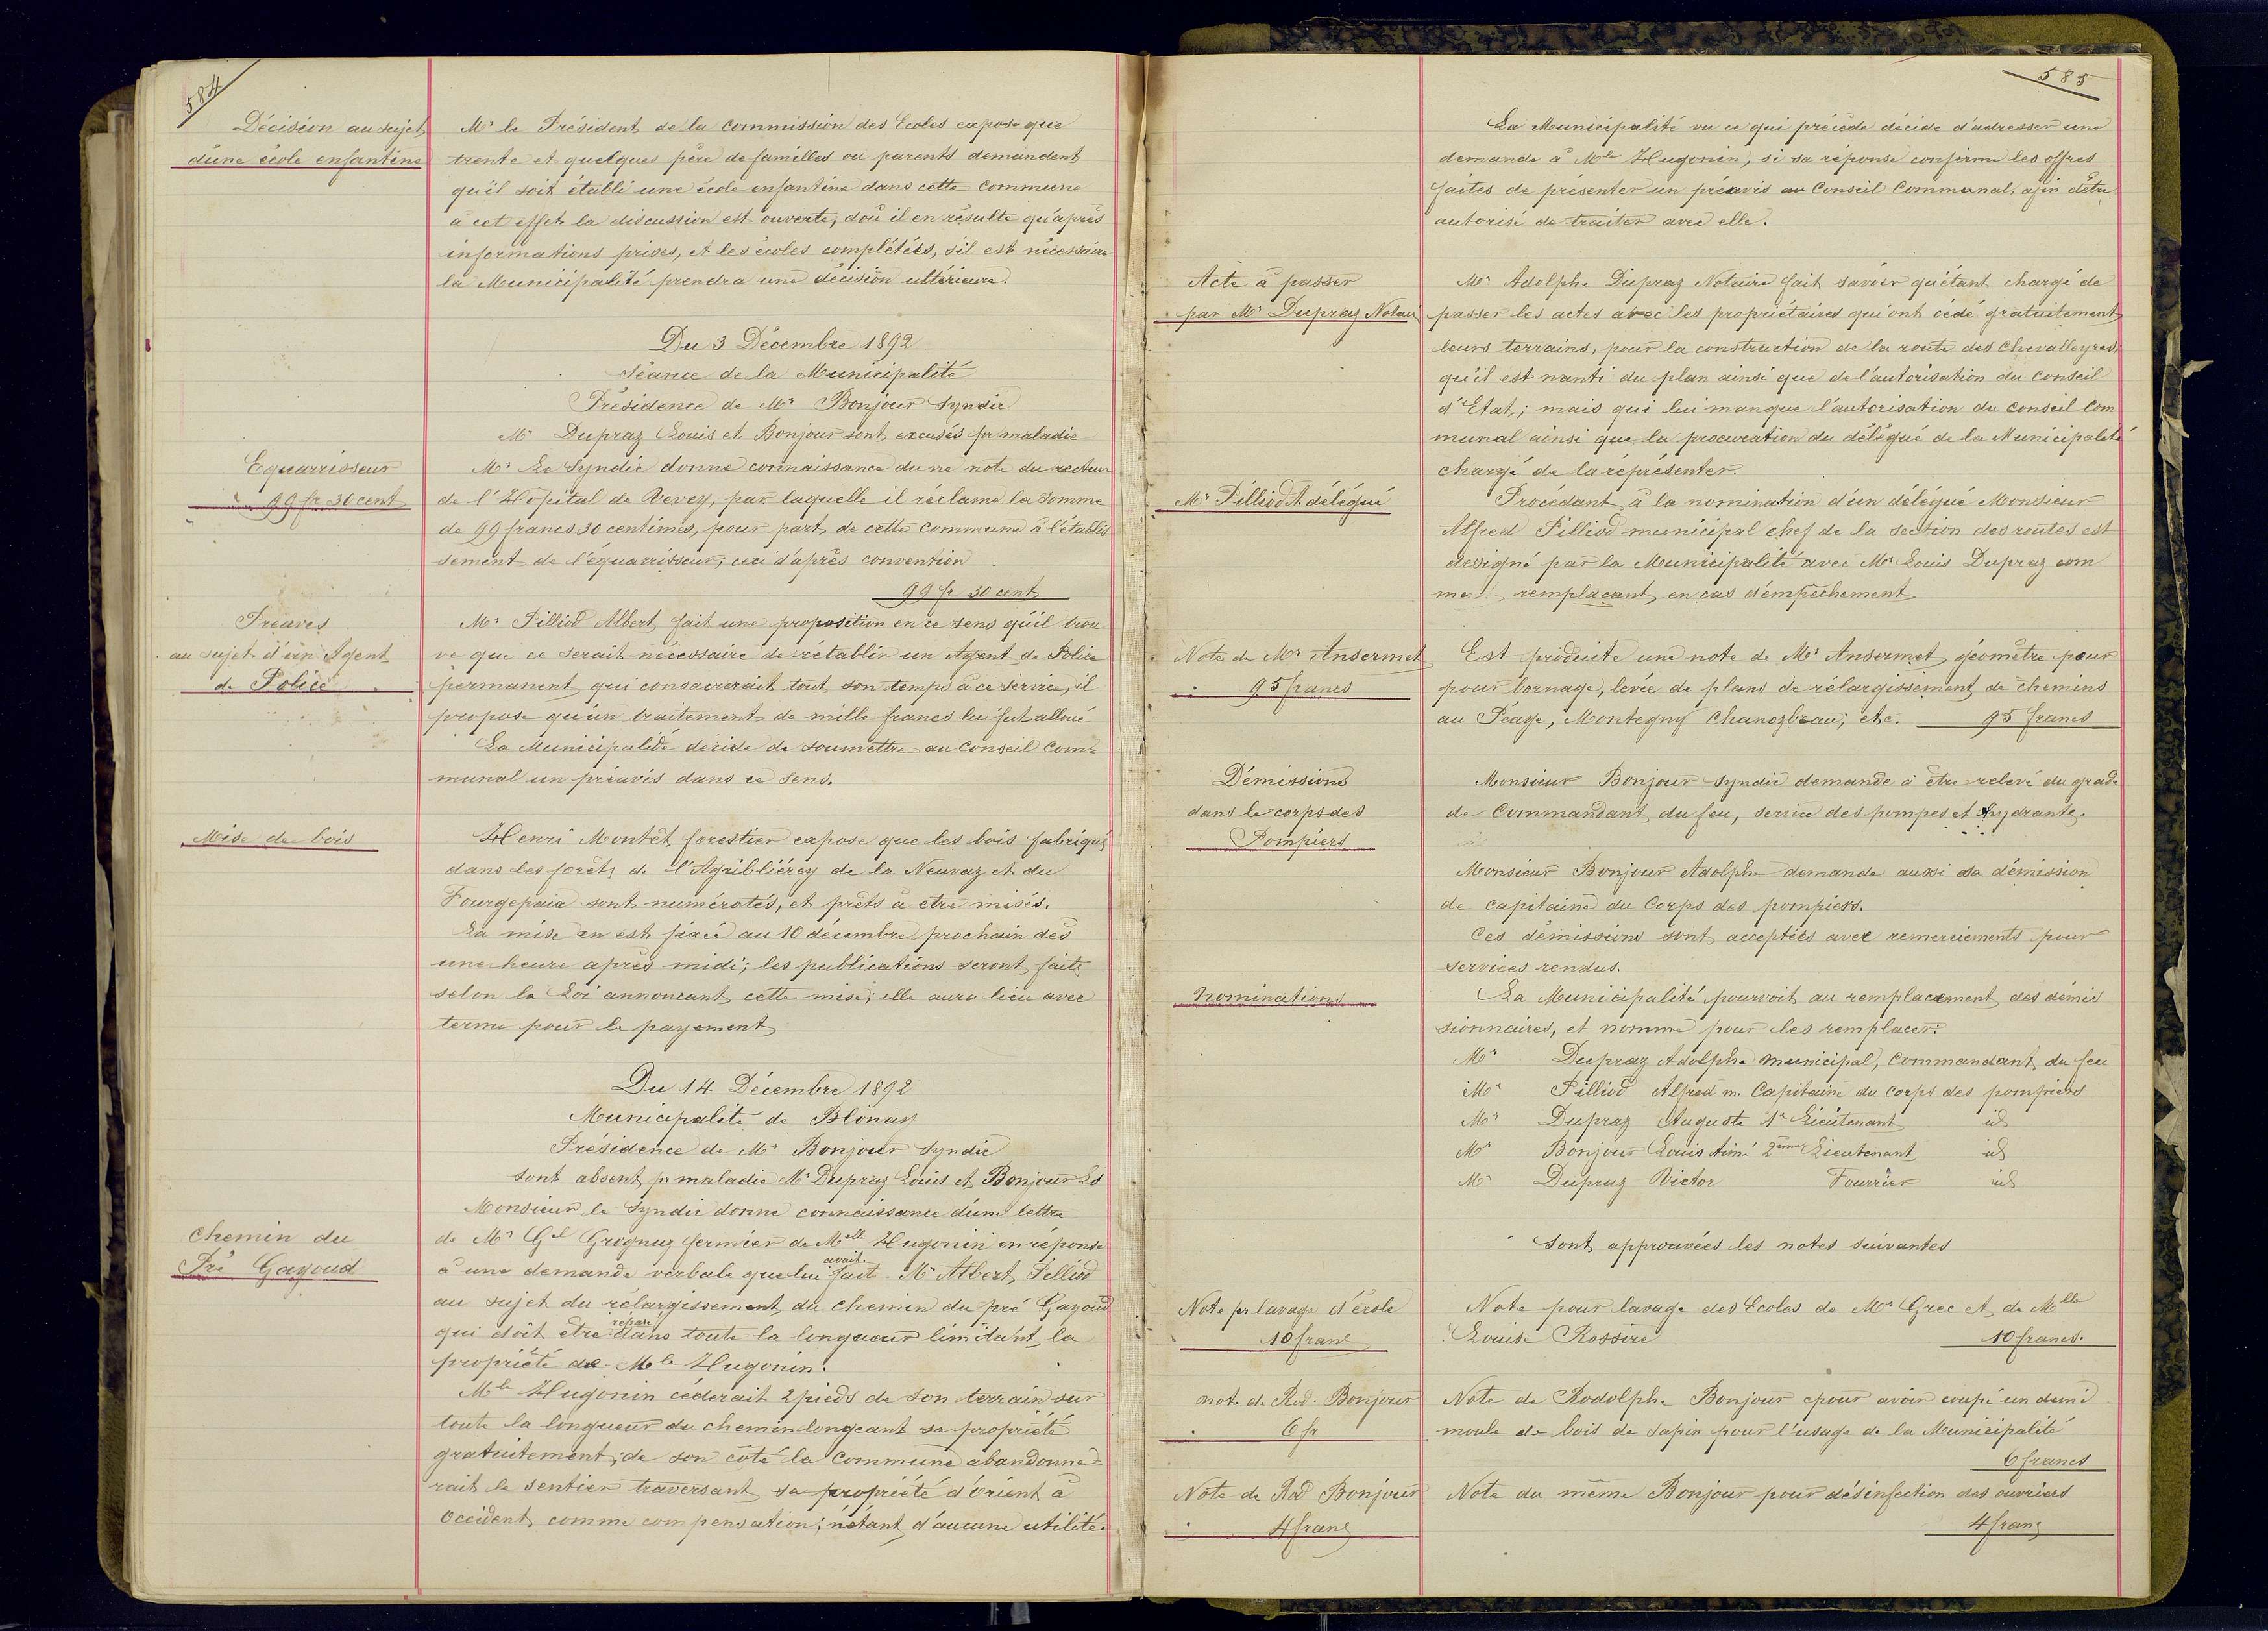 584
Décision au sujet
d'une école enfantine
Mr le Président de la Commission des Ecoles expose que
trente et quelques père de familles ou parents demandent
qu'il soit établi une école enfantine dans cette Commune
à cet effet la discussion est ouverte, d'où il en résulte qu'après
informations prises, et les écoles complétées, s'il est nécessaire
la Municipalité prendra une décision ultérieure.
Du 3 Décembre 1892
Séance de la Municipalité
Présidence de Mr Bonjour Syndic
Mr Dupraz Louis et Bonjour sont excusés pr maladie
Equarrisseur
99 fr 30 cent
Mr Le Syndic donne connaissance du ne note du recteur
de l'Hôpital de Vevey, par laquelle il réclame la somme
de 99 francs 30 centimes, pour part, de cette Commune à l'établis
sement de l'équarrisseur; ceci d'après convention
99 fr 30 cent
Préavis
au sujet d'un Agent
de Police
Mr Pilliod Albert fait une proposition en ce sens qu'il trou
ve que ce serait nécessaire de rétablir un Agent de Police
permanent qui consacrerait tout son temps à ce service, il
propose qu'un traitement de mille francs lui fut alloué
La Municipalité décide de soumettre au Conseil Com=
munal un préavis dans ce sens.
Mise de bois
Henri Montet forestier expose que les bois fabriqués
dans les forêts de l'Agribliérey de la Neuvaz et du
Fourgepaix sont numérotés, et prêts à être misés.
La mise en est fixée au 10 décembre prochain dès
une heure après midi; les publications seront faites
selon la Loi annoncant cette mise; elle aura lieu avec
terme pour le payement
Du 14 Décembre 1892
Municipalité de Blonay
Présidence de Mr Bonjour Syndic
Sont absent pr maladie Mr Dupraz Louis et Bonjour Ls
Chemin du
Pré Gayoud
Monsieur le Syndic donne connaissance d'une lettre
de Mr Gel Grognuz fermier de Melle Hugonin en réponse
à une demande verbale que lui avait fait Mr Albert Pilliod
au sujet du rélargissement du chemin du pré Gayoud
qui doit être repare dans toute la longueur limitant la
propriété de Mlle Hugonin.
Mlle Hugonin céderait 2 pieds de son terrain sur
toute la longueur du chemin longeant sa propriété
gratuitement; de son côté la Commune abandonne=
rait le sentier traversant sa propriété d'orient à
Occident comme compensation; n'étant d'aucune utilité.
585
La Municipalité vu ce qui précède décide d'adresser une
demande à Mlle Hugonin, si sa réponse confirme les offres
faites de présenter un préavis au Conseil Communal, afin d'être
autorisé de traiter avec elle.
Acte à passer
par Mr Dupraz Notaire
Mr Adolphe Dupraz Notaire fait savoir qu'étant chargé de
passer les actes avec les propriétaires qui ont cédé gratuitement
leurs terrains, pour la construction de la route des Chevalleyres,
qu'il est nanti du plan ainsi que de l'autorisation du Conseil
d'Etat; mais qui lui manque l'autorisation du Conseil Com
munal ainsi que la procuration du délégué de la Municipalité
chargé de la réprésenter.
Mr Pilliod A. délégué
Procédant à la nomination d'un délégué Monsieur
Alfred Pilliod municipal chef de la section des routes est
designé par la Municipalité avec Mr Louis Dupraz com
me remplacant en cas d'empêchement
Note de Mr Ansermet
95 francs
Est produite une note de Mr Ansermet géomètre pour
pour bornage, levée de plans de rélargissement de chemins
au Péage, Montegny Chanozbeau, etc. 95 francs
Démissions
dans le corps des
Pompiers
Monsieur Bonjour Syndic demande à être relevé du grade
de Commandant du feu, service des pompes et hydrante.
Monsieur Bonjour Adolphe demande aussi sa démission
de capitaine du Corps des pompiers.
Ces démissions sont acceptées avec remerciements pour
services rendus.
Nominations
La Municipalité pourvoit au remplacement des démis
sionnaires, et nomme pour les remplacer:
Mr Dupraz Adolphe Municipal, Commandant du feu
Mr Pilliod Alfred m. Capitaine du Corps des pompiers
Mr Dupraz Auguste 1r Lieutenant id
Mr Bonjour Louis Aimé 2ème Lieutenant id
Mr Dupraz Victor Fourrier id
Sont approuvées les notes suivantes
Note pr lavage d'école
10 franc
Note pour lavage des Ecoles de Mr Grec et de Mlle
Louise Rossire 10 francs.
note de Rod. Bonjour
6 fr
Note de Rodolphe Bonjour pour avoir coupé un demi
moule de bois de sapin pour l'usage de la Municipalité
6 francs
Note de Rod Bonjour
4 francs
Note du même Bonjour pour désinfection des ouvriers
4 francs